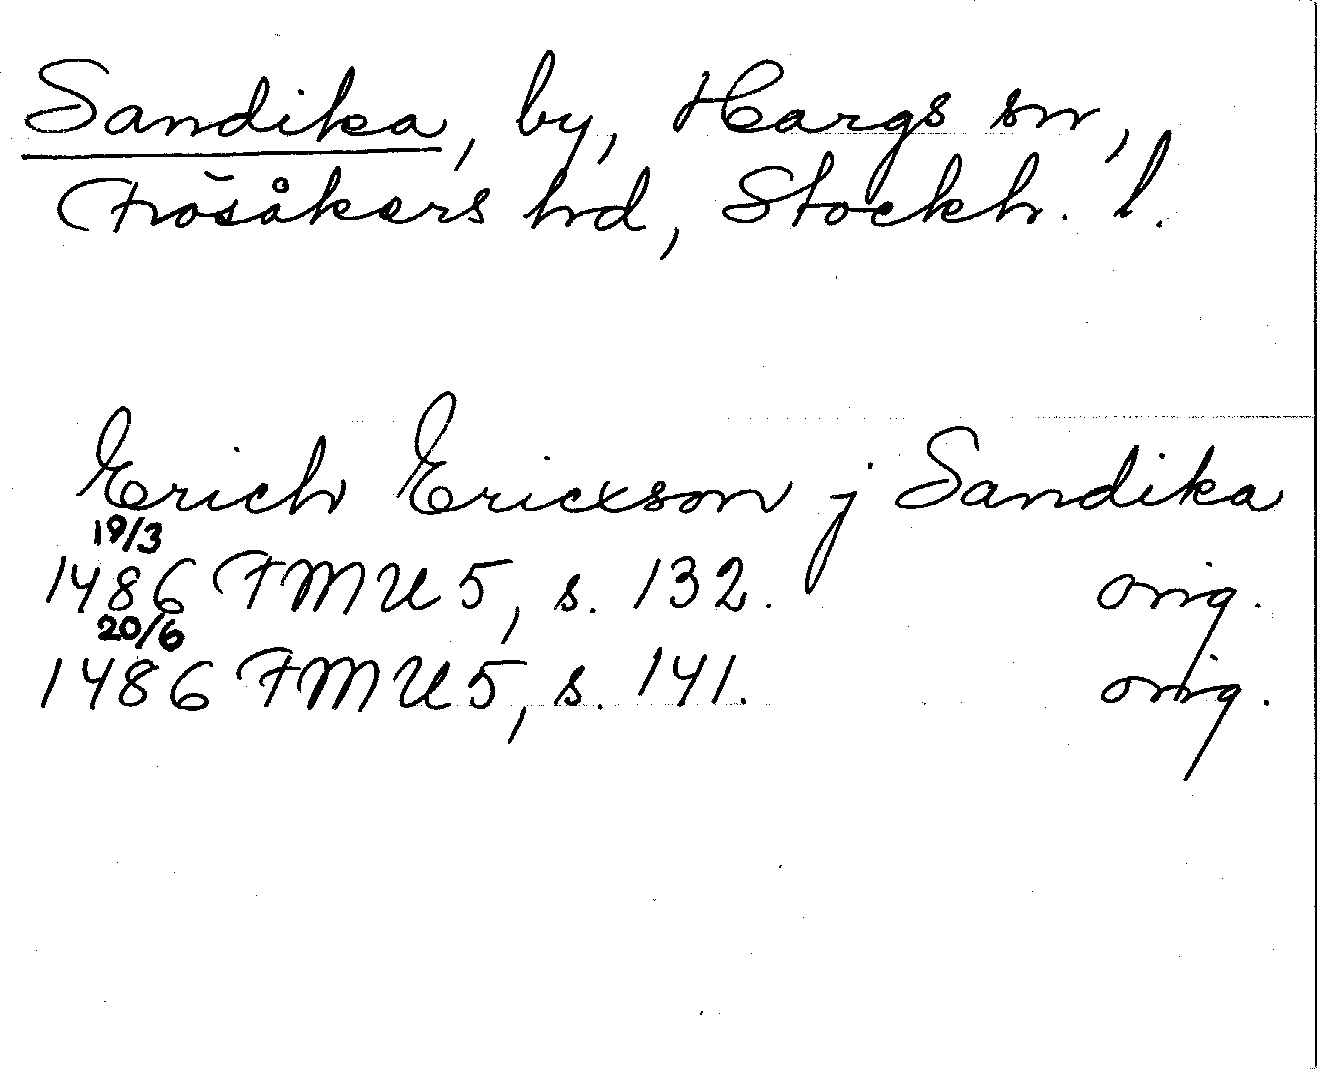 Sandika, by, Hargs sn,
Frösåkers hd, Stockh. l.
Erich Ericxson j Sandika
19/3
1486 FMU 5, s. 132. orig.
20/6
1486 FMU 5, s. 141. orig.